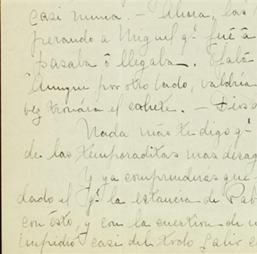 casi nunca. - Ahora, las
perando a Miguel qº fué á
pasaba ó llegaba.
Aunque por otro lado, valdría
vez tronára el cohete. -
Nada más te digo qº
de las temporaditas mas desag
Y ya comprenderas que
dado el la estancia de Pab
con ésto, y con la cuestion de
impidió casi del todo salir